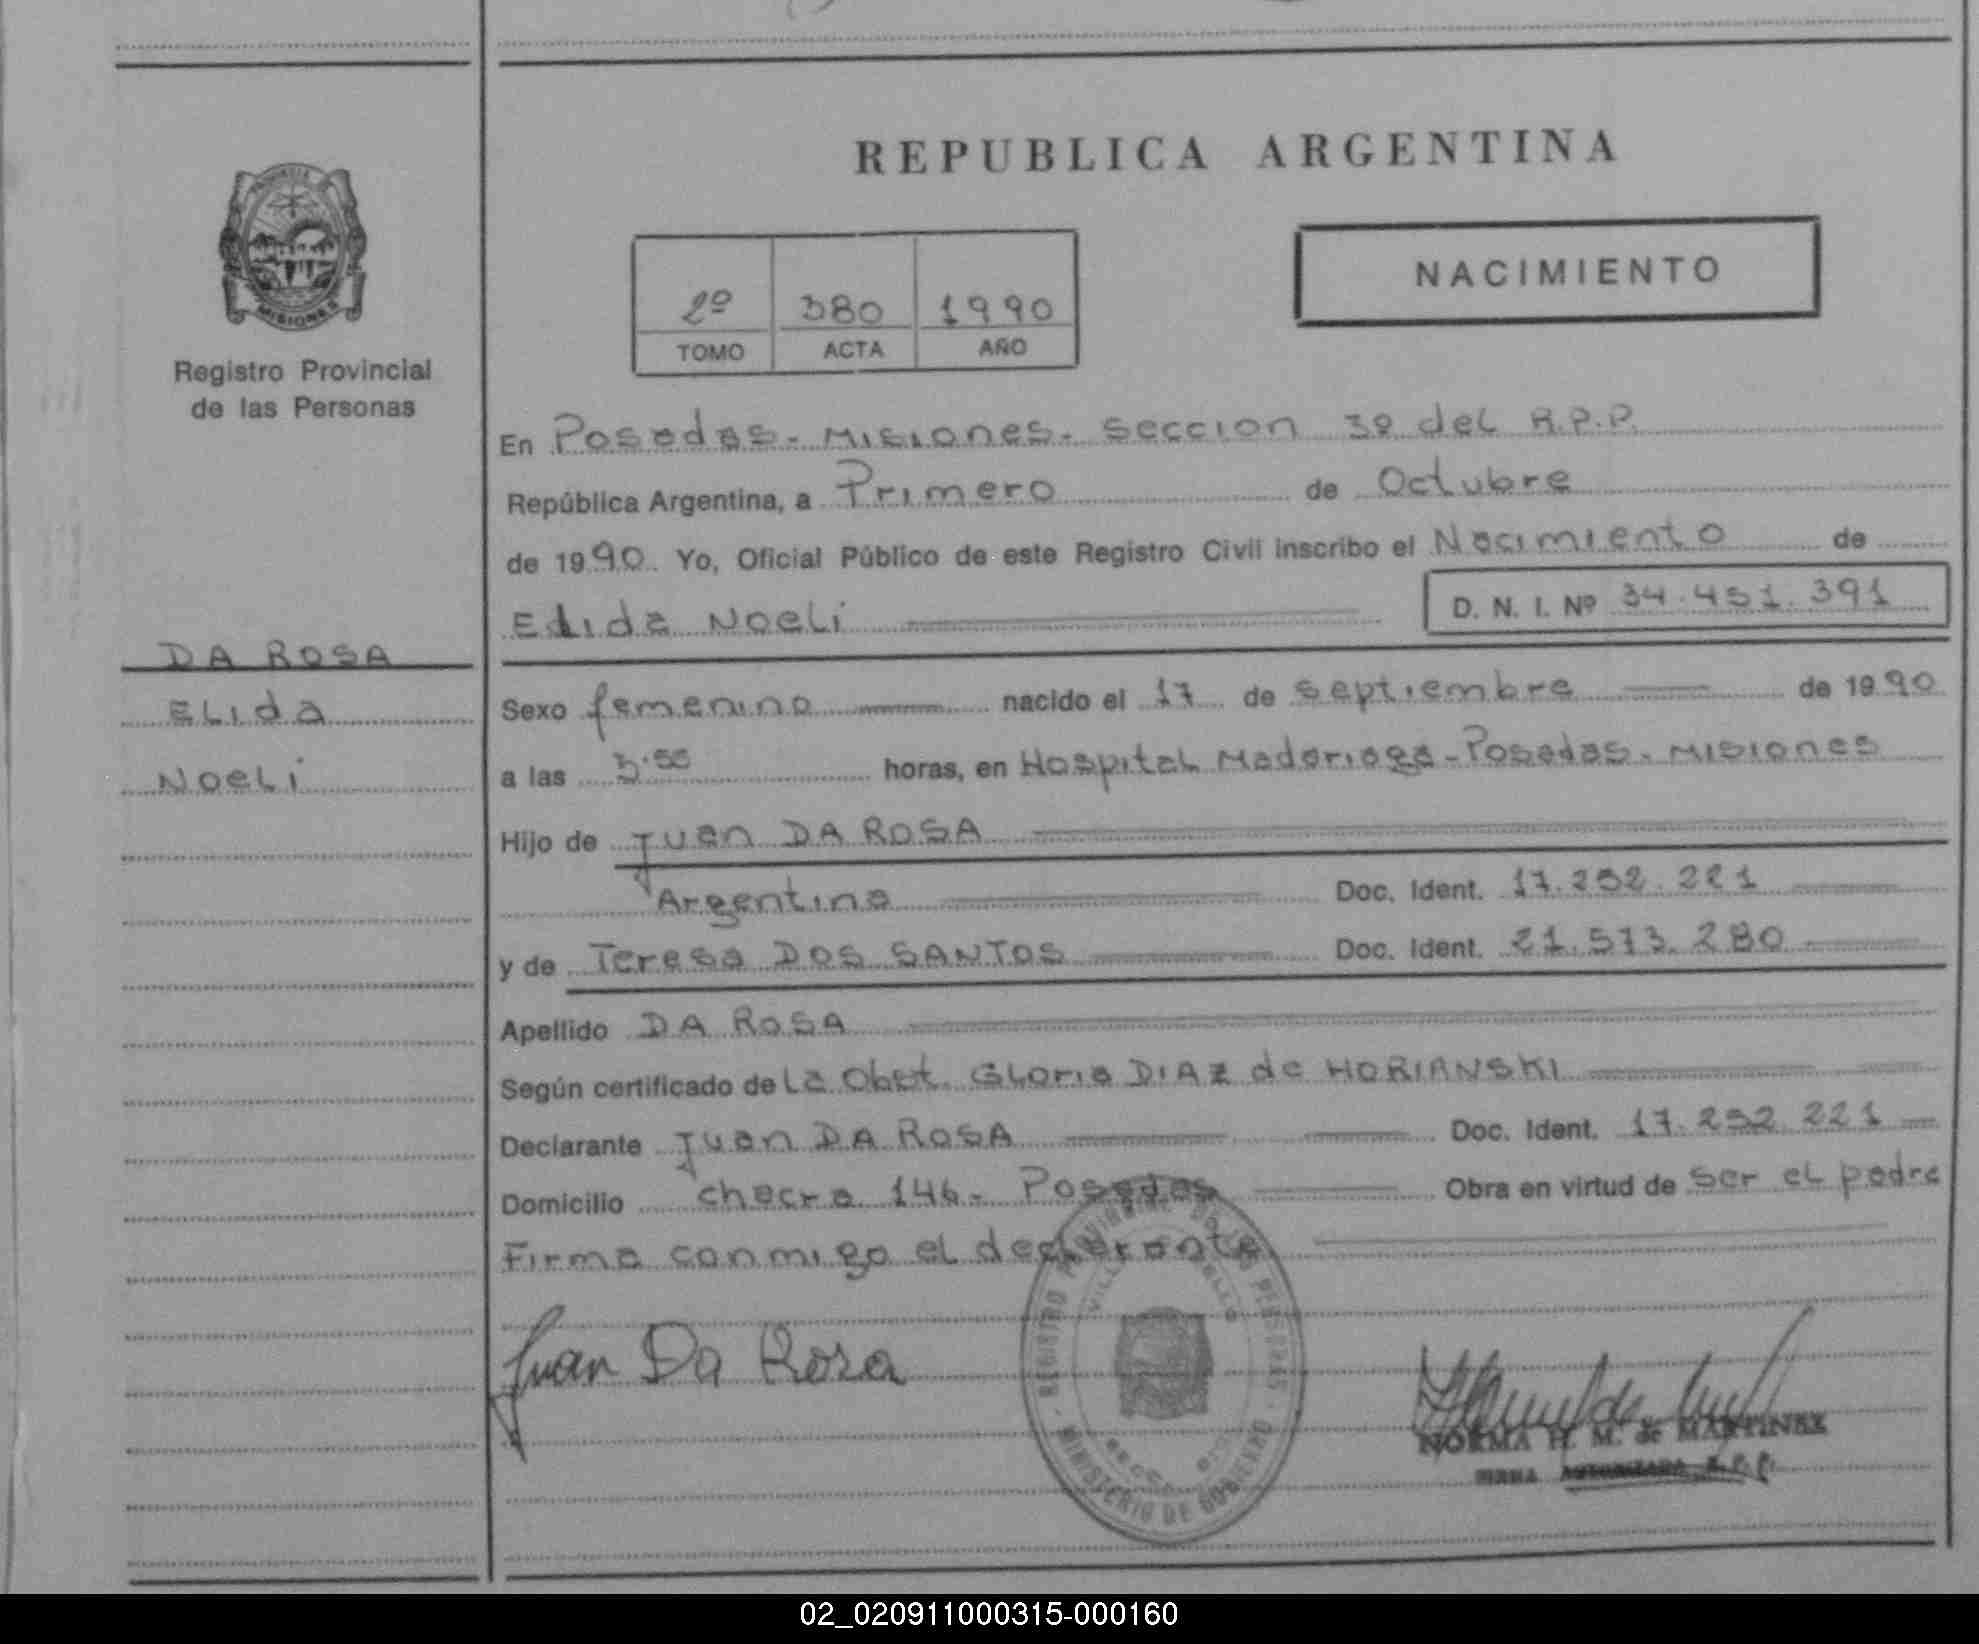 REPUBLICA ARGENTINA
PROVINCIA DE
MISIONES
Registro Provincial
de las Personas
NACIMIENTO
2º 380 1990
TOMO ACTA AÑO
En Posadas - Misiones - seccion 3º del R.P.P.
República Argentina, a Primero de Octubre
de 1990 Yo, Oficial Público de este Registro Civil inscribo el Nacimiento de
Elida Noeli D. N. I. Nº 34.451.391
DA ROSA
ELida
NoeLi
Sexo femenino nacido el 17 de septiembre de 1990
a las horas, en Hospital Madariaga - Posadas - Misiones
Hijo de Juan DA ROSA
Argentino Doc. Ident. 17.252.221
y de Teresa DOS SANTOS Doc. Ident. 21.573.280
Apellido DA ROSA
Según certificado de La Obst. GLoria DIAZ de HORIANSKI
Declarante Juan DA ROSA Doc. Ident. 17.252.221
Domicilio chacra 146 - Posadas Obra en virtud de ser el padre
Firma conmigo el declarante
Juan Da Rosa
REGISTRO PROVINCIAL DE LAS PERSONAS
MINISTERIO DE GOBIERNO
NORMA H. M. de MARTINEZ
FIRMA AUTORIZADA R.P.P.
02_020911000315-000160